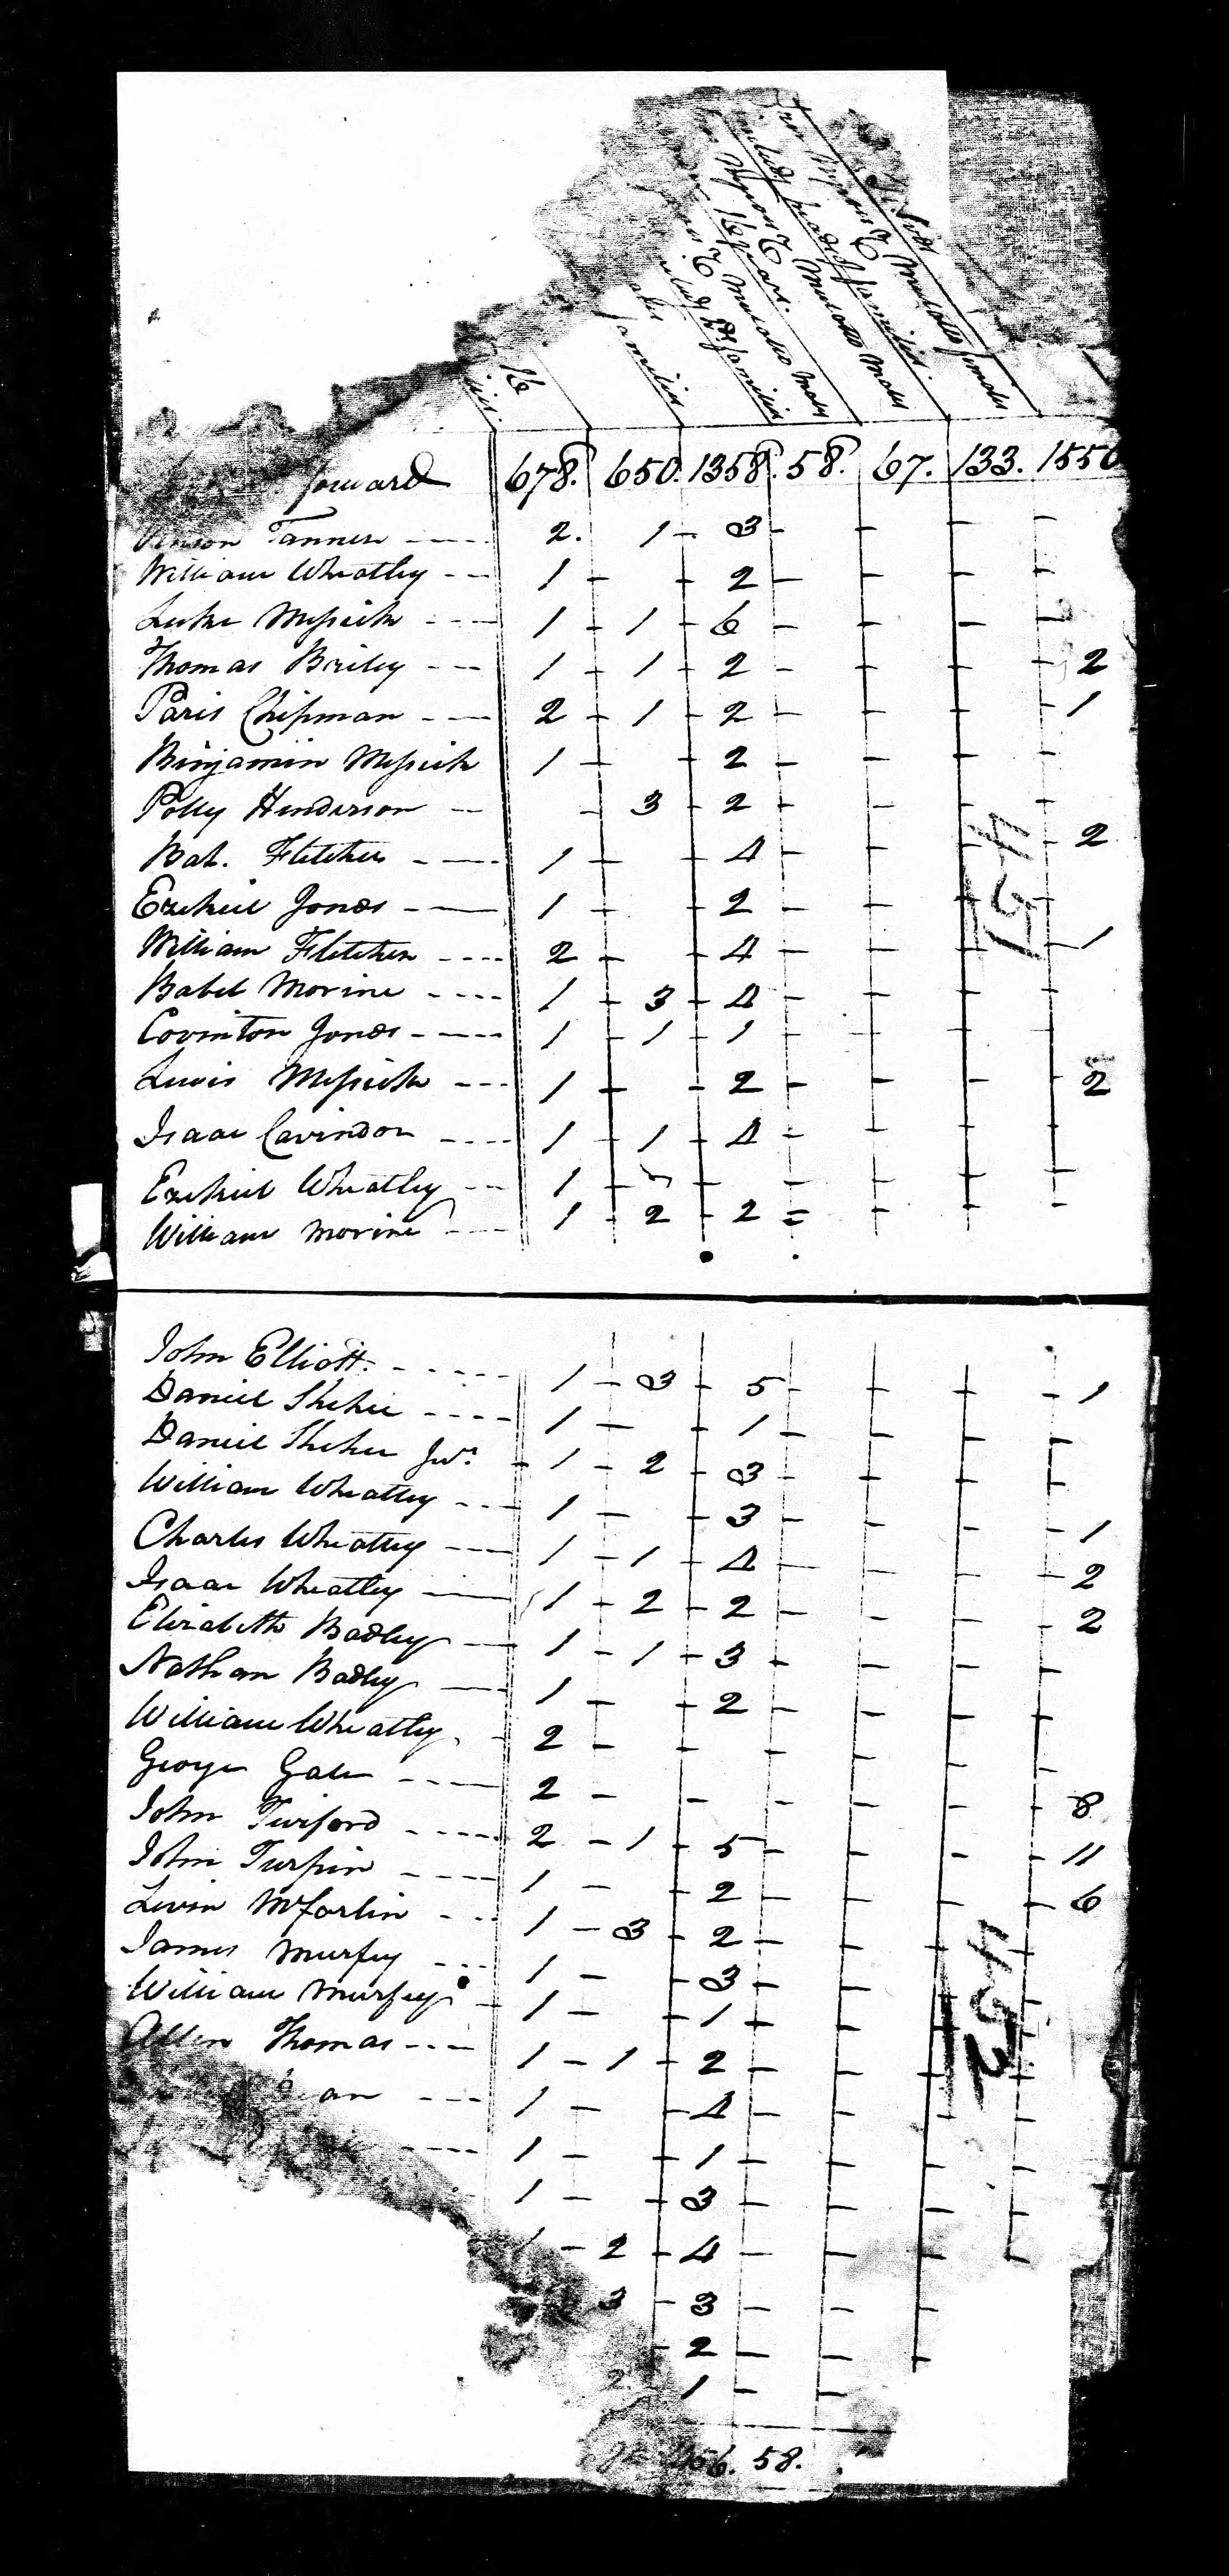 Free Negroes & Mulatto females
includg heads of families.
Negroes & Mulatto males
16 years.
& Mulatto males
includg hds families
families
16
forward 678. 650. 1358. 58. 67. 133. 1550
Tanner 2. 1 - 3 - - - -
William Wheatley 1 - - 2 - - - -
Luke Messick 1 - 1 - 6 - - - -
Thomas Briley 1 - 1 - 2 - - - - 2
Paris Chipman 2 - 1 - 2 - - - - 1
Binjamin Messick 1 - - 2 - - - -
Polly Henderson - 3 - 2 - - - -
Bat. Fletcher 1 - - 4 - - - - 2
Ezekiel Jones 1 - - 2 - - - -
William Fletcher 2 - - 4 - - - - 1
Babel Morine 1 - 3 - 4 - - - -
Covinton Jones 1 - 1 - 1 - - - -
Lewis Messick 1 - - 2 - - - - 2
Isaac Cavindor 1 - 1 - 4 - - - -
Ezekiel Wheatley 1 - - - - - -
William Morine 1 - 2 - 2 = - - -
451
John Elliott 1 - 3 - 5 - - - - 1
Daniel Shehee 1 - - 1 - - - -
Daniel Shehee Junr. - 1 - 2 - 3 - - - -
William Wheatley 1 - - 3 - - - - 1
Charles Wheatley 1 - 1 - 4 - - - - 2
Isaac Wheatley 1 - 2 - 2 - - - - 2
Elizabeth Badley 1 - 1 - 3 - - - -
Nathan Badley 1 - - 2 - - - -
William Wheatley 2 - - - - - -
George Gale 2 - - - - - - 8
John Twiford 2 - 1 - 5 - - - - 11
John Turpin 1 - - 2 - - - - 6
Levin McFarlin 1 - 3 - 2 - - - -
James Murfey 1 - - 3 - - - -
William Murfey 1 - - 1 - - - -
Allen Thomas 1 - 1 - 2 - - - -
an 1 - - 4 - - - -
1 - - 1 - - - -
1 - - 3 - - - -
1 - 2 - 4 - - - -
3 - 3 - - -
- 2 - - -
2 1 - -
456. 58.
452